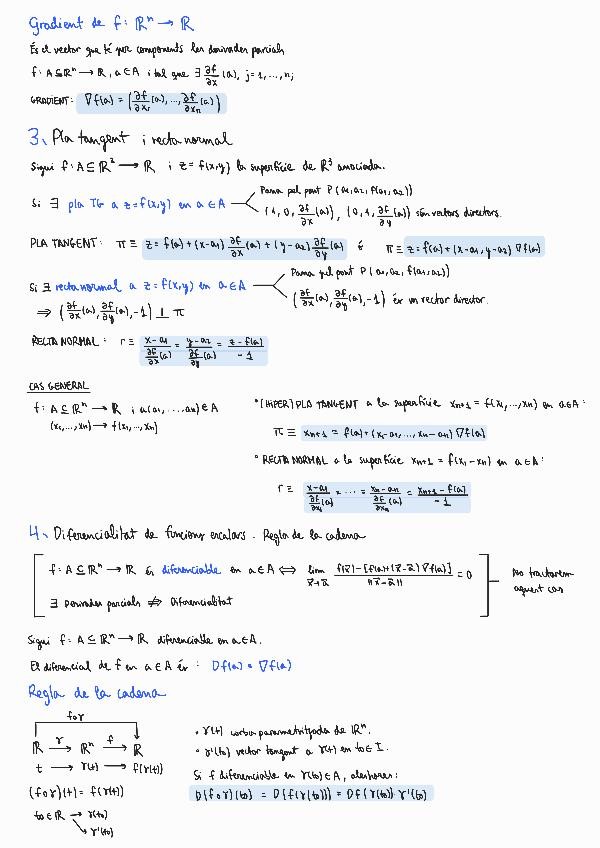 Gradient de f: ℝⁿ → ℝ
És el vector que té per components les derivades parcials
f: A ⊆ ℝⁿ → ℝ, a ∈ A i tal que ∃ ∂f/∂x (a), j=1,...,n;
GRADIENT: ∇f(a) = (∂f/∂x₁(a),...,∂f/∂xₙ(a))
3. Pla tangent i recta normal
Sigui f: A ⊆ ℝ² → ℝ i z = f(x,y) la superfície de ℝ³ associada.
Si ∃ pla TG a z=f(x,y) en a ∈ A
Passa pel punt P(a₁,a₂,f(a₁,a₂))
(1,0,∂f/∂x(a)), (0,1,∂f/∂y(a)) són vectors directors.
PLA TANGENT: π ≡ z = f(a) + (x-a₁) ∂f/∂x(a) + (y-a₂) ∂f/∂y(a) é π ≡ z = f(a) + (x-a₁, y-a₂) ∇f(a)
Si ∃ recta normal a z=f(x,y) en a ∈ A
Passa pel punt P(a₁,a₂,f(a₁,a₂))
(∂f/∂x(a), ∂f/∂y(a), -1) és un vector director.
⇒ (∂f/∂x(a), ∂f/∂y(a), -1) ⊥ π
RECTA NORMAL: r ≡ (x-a₁)/(∂f/∂x(a)) = (y-a₂)/(∂f/∂y(a)) = (z-f(a))/(-1)
CAS GENERAL
f: A ⊆ ℝⁿ → ℝ i a(a₁,...,aₙ) ∈ A
(x₁,...,xₙ) → f(x₁,...,xₙ)
• (HIPER)PLA TANGENT a la superfície xₙ₊₁ = f(x₁,...,xₙ) en a ∈ A:
π ≡ xₙ₊₁ = f(a) + (x₁-a₁,...,xₙ-aₙ) ∇f(a)
• RECTA NORMAL a la superfície xₙ₊₁ = f(x₁-xₙ) en a ∈ A:
r ≡ (x-a₁)/(∂f/∂x₁(a)) = ... = (xₙ-aₙ)/(∂f/∂xₙ(a)) = (xₙ₊₁-f(a))/(-1)
4. Diferenciabilitat de funcions escalars. Regla de la cadena
f: A ⊆ ℝⁿ → ℝ és diferenciable en a ∈ A ⇔ lim x→a (f(x)-[f(a)+(x-a)∇f(a)])/||x-a|| = 0
∃ Derivades parcials ⇏ Diferenciabilitat
No tractarem
aquest cas
Sigui f: A ⊆ ℝⁿ → ℝ diferenciable en a ∈ A.
El diferencial de f en a ∈ A és: Df(a) = ∇f(a)
Regla de la cadena
f∘γ
ℝ →γ ℝⁿ →f ℝ
t → γ(t) → f(γ(t))
(f∘γ)(t) = f(γ(t))
t₀ ∈ ℝ → γ(t₀)
↘ γ'(t₀)
• γ(t) corba parametritzada de ℝⁿ.
• γ'(t₀) vector tangent a γ(t) en t₀ ∈ I.
Si f diferenciable en γ(t₀) ∈ A, aleshores:
D(f∘γ)(t₀) = D(f(γ(t₀))) = Df(γ(t₀)) γ'(t₀)